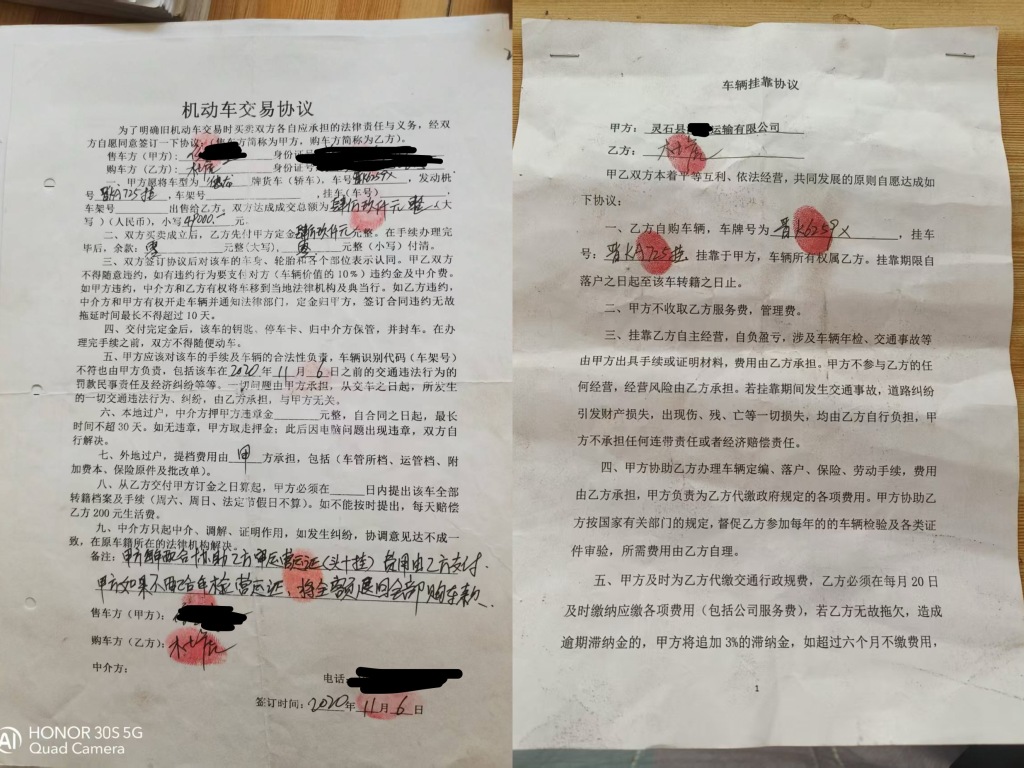 机动车交易协议
为了明确旧机动车交易时买卖双方各自应承担的法律责任与义务，经双
方自愿同意签订一下协议：（售车方简称为甲方，购车方简称为乙方）。
售车方（甲方）：身份证号
购车方（乙方）：身份证号
一、甲方愿将车型为 牌货车（轿车），车号晋K6259X，发动机
号，车架号，挂车（车号），
车架号出售给乙方，双方达成成交总额为肆万玖仟元整（大
写）（人民币），小写49000.-元。
二、双方买卖成立后，乙方先付甲方定金肆万玖仟元元整。在手续办理完
毕后，余款：零元整（大写），零元整（小写）付清。
三、双方签订协议后对该车的车身、轮胎和各个部位表示认同。甲乙双方
不得随意违约，如有违约行为要支付对方（车辆价值的10%）违约金及中介费。
如甲方违约，中介方和乙方有权将车移到当地法律机构及典当行。如乙方违约，
中介方和甲方有权开走车辆并通知法律部门，定金归甲方，签订合同违约无故
拖延时间最长不得超过10天。
四、交付完定金后，该车的钥匙、停车卡、归中介方保管，并封车。在办
理完手续之前，双方不得随便动车。
五、甲方应该对该车的手续及车辆的合法性负责，车辆识别代码（车架号）
不符也由甲方负责，包括该车在2020年11月6日之前的交通违法行为的
罚款民事责任及经济纠纷等等。一切问题由甲方承担，从交车之日起，所发生
的一切交通违法行为、纠纷，由乙方承担，与甲方无关。
六、本地过户，中介方押甲方违章金元整，自合同之日起，最长
时间不超30天。如无违章，甲方取走押金；此后因电脑问题出现违章，双方自
行解决。
七、外地过户，提档费用由甲方承担，包括（车管所档、运管档、附
加费本、保险原件及批改单）。
八、从乙方交付甲方订金之日算起，甲方必须在日内提出该车全部
转籍档案及手续（周六、周日、法定节假日不算）。如不能按时提出，每天赔偿
乙方200元生活费。
九、中介方只起中介、调解、证明作用，如发生纠纷，协调意见达不成一
致，在原车籍所在的法律机构解决。
备注：甲方配合协助乙方审运营运证（头+挂）费用由乙方支付.
甲方如果不由给年检营运证，将全额退回全部购车款.
售车方（甲方）：
购车方（乙方）：
中介方：
电话：
签订时间：2020年11月6日
HONOR 30S 5G
AI Quad Camera
车辆挂靠协议
甲方：灵石县运输有限公司
乙方：
甲乙双方本着平等互利、依法经营，共同发展的原则自愿达成如
下协议：
一、乙方自购车辆，车牌号为晋K6259X，挂车
号：晋KA725挂 挂靠于甲方，车辆所有权属乙方。挂靠期限自
落户之日起至该车转籍之日止。
二、甲方不收取乙方服务费，管理费。
三、挂靠乙方自主经营，自负盈亏，涉及车辆年检、交通事故等
由甲方出具手续或证明材料，费用由乙方承担。甲方不参与乙方的任
何经营，经营风险由乙方承担。若挂靠期间发生交通事故，道路纠纷
引发财产损失，出现伤、残、亡等一切损失，均由乙方自行负担，甲
方不承担任何连带责任或者经济赔偿责任。
四、甲方协助乙方办理车辆定编、落户、保险、劳动手续，费用
由乙方承担，甲方负责为乙方代缴政府规定的各项费用。甲方协助乙
方按国家有关部门的规定，督促乙方参加每年的的车辆检验及各类证
件审验，所需费用由乙方自理。
五、甲方及时为乙方代缴交通行政规费，乙方必须在每月20日
及时缴纳应缴各项费用（包括公司服务费），若乙方无故拖欠，造成
逾期滞纳金的，甲方将追加3%的滞纳金，如超过六个月不缴费用，
1